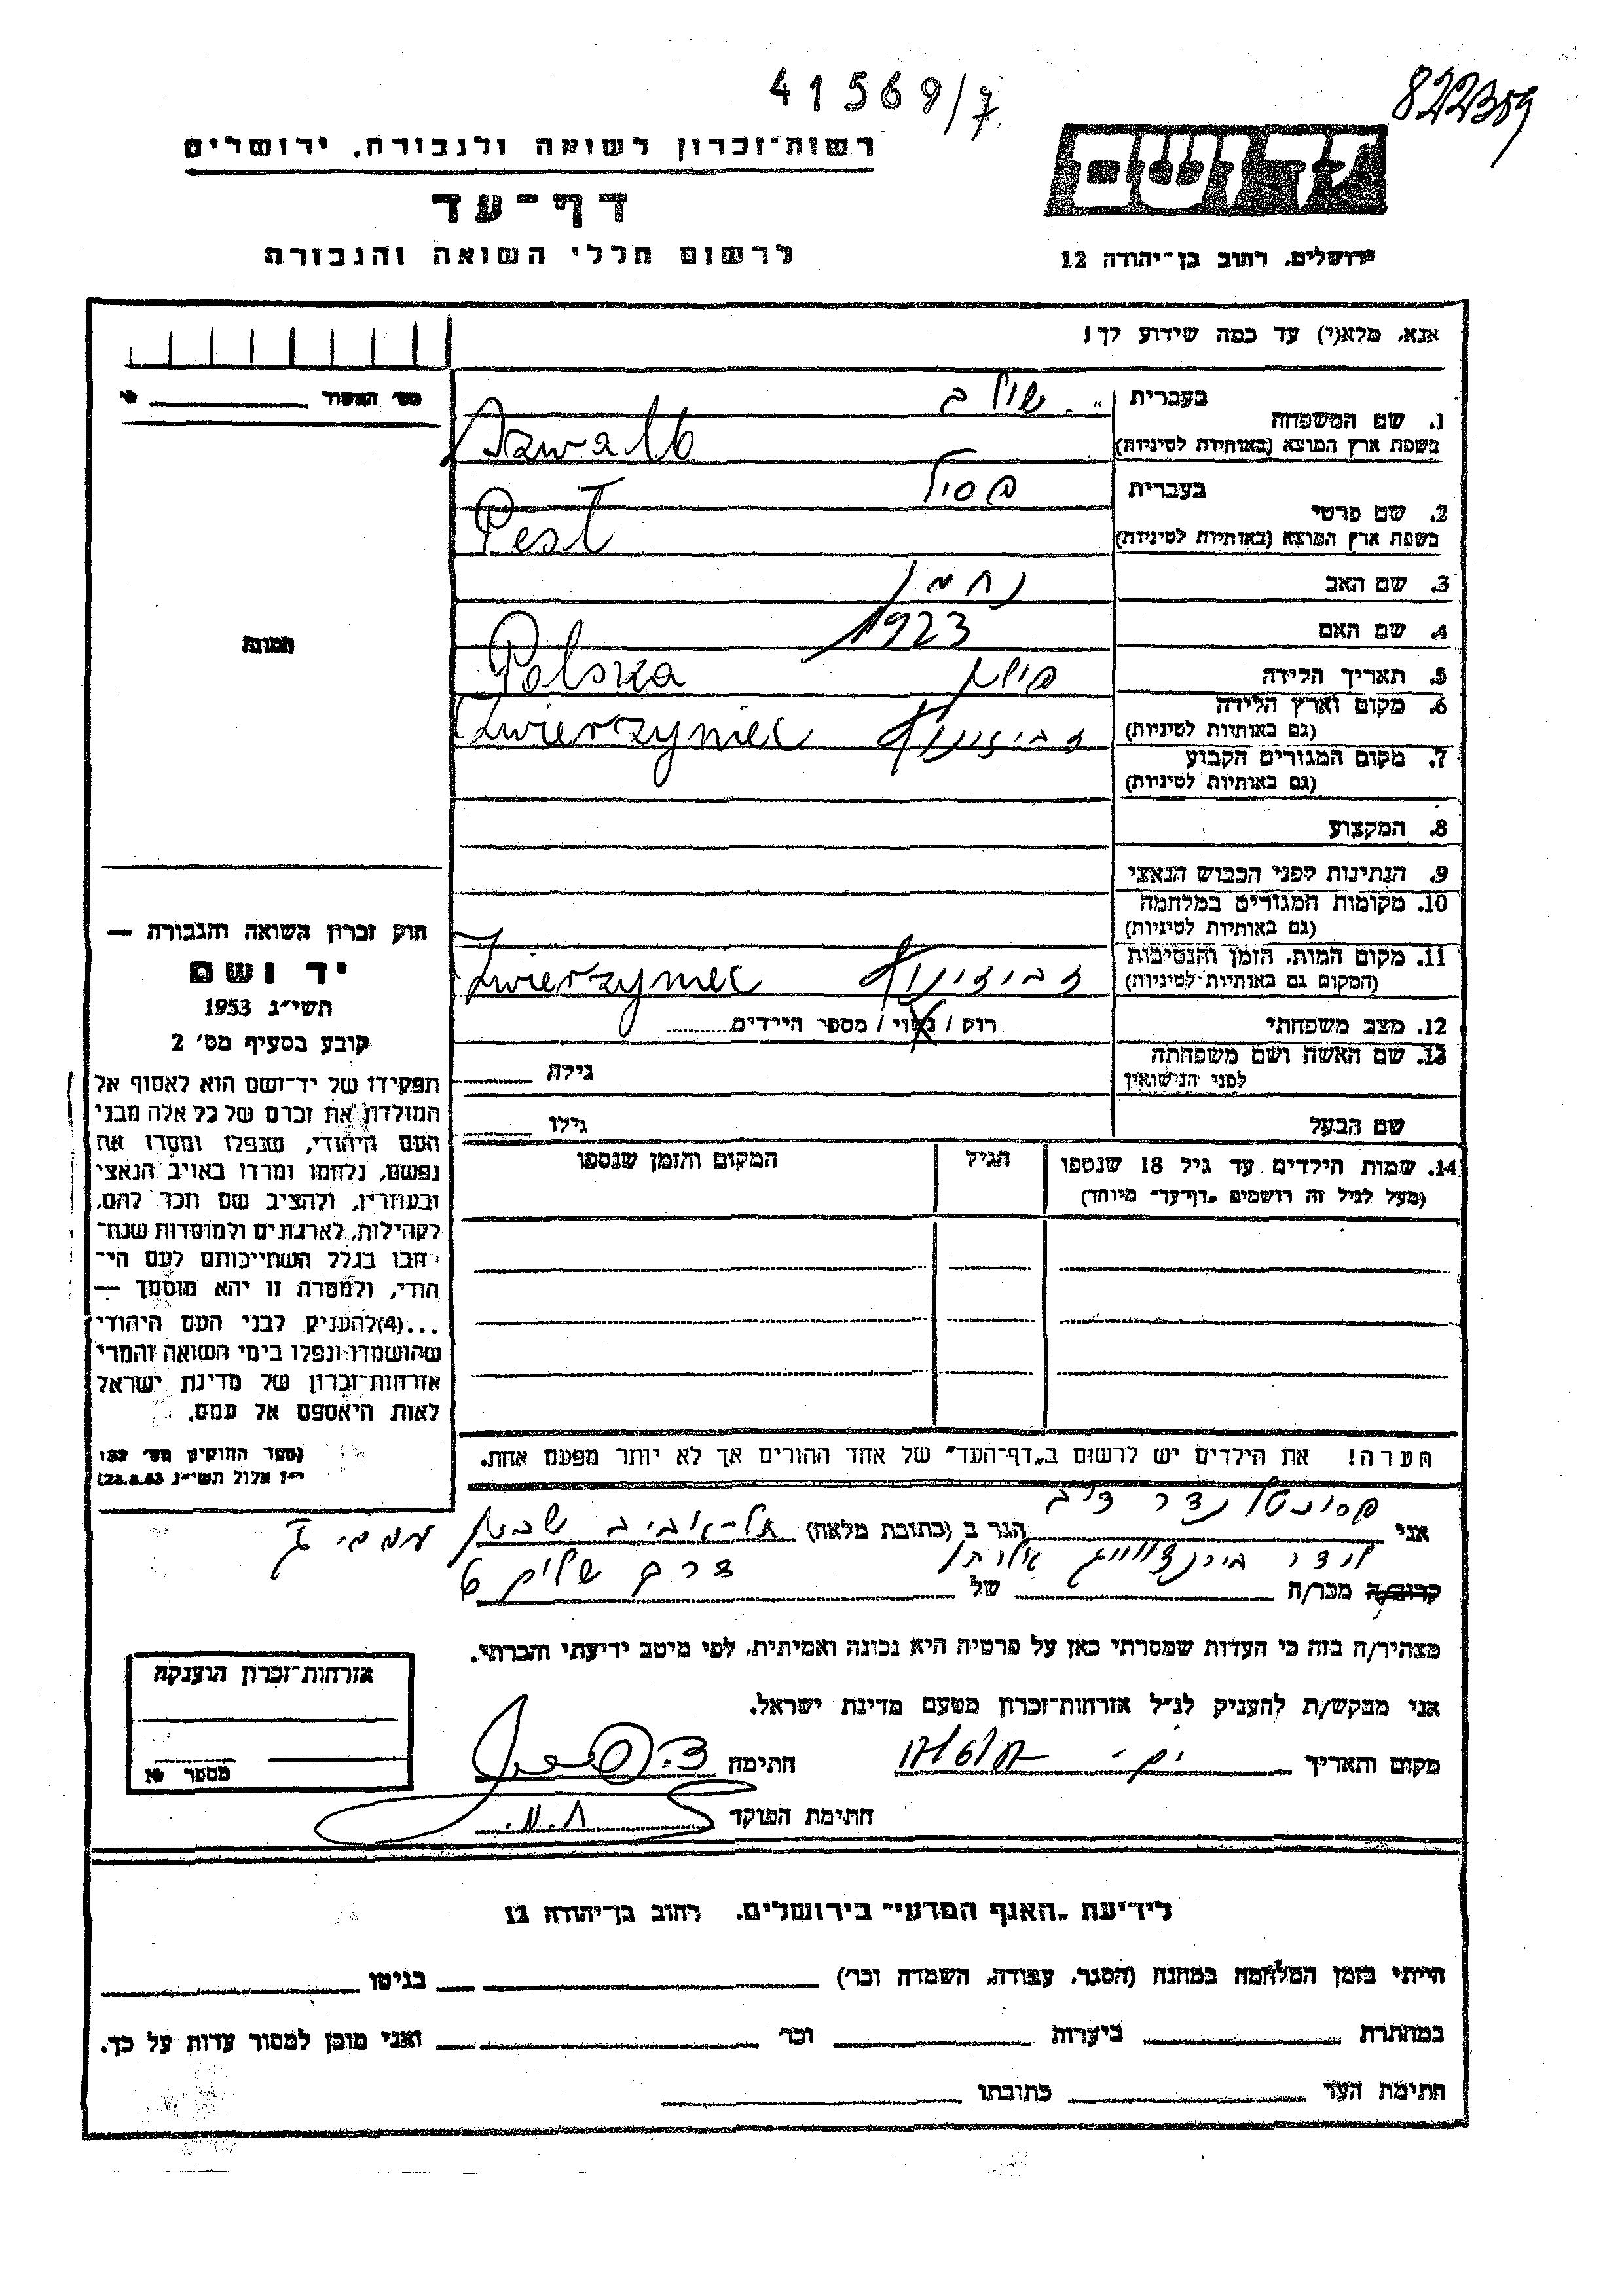 41569/7
822309
רשות־זכרון לשואה ולגבורה, ירושלים
דף־עד
לרשום חללי השואה והגבורה
ירושלים, רחוב בן־יהודה 12
אנא, מלא(י) עד כמה שידוע לך!
מס' האשור
1. שם המשפחה בעברית
בשפת ארץ המוצא (באותיות לטיניות) Szwalb
2. שם פרטי בעברית
בשפת ארץ המוצא (באותיות לטיניות) Pest
3. שם האב נחמן
4. שם האם
5. תאריך הלידה 1923
6. מקום וארץ הלידה פולין Polska
(גם באותיות לטיניות)
7. מקום המגורים הקבוע Zwierzyniec
(גם באותיות לטיניות)
8. המקצוע
9. הנתינות לפני הכבוש הנאצי
10. מקומות המגורים במלחמה
(גם באותיות לטיניות)
11. מקום המות, הזמן והנסיבות Zwierzyniec
(המקום גם באותיות לטיניות)
12. מצב משפחתי רוק / נשוי / מספר הילדים
13. שם האשה ושם משפחתה גילה
לפני הנישואין
שם הבעל גילו
14. שמות הילדים עד גיל 18 שנספו הגיל המקום והזמן שנספו
(מעל לגיל זה רושמים "דף־עד" מיוחד)
הערה! את הילדים יש לרשום ב"דף־העד" של אחד ההורים אך לא יותר מפעם אחת.
תמונה
חוק זכרון השואה והגבורה —
יד ושם
תשי"ג 1953
קובע בסעיף מס' 2
תפקידו של יד־ושם הוא לאסוף אל
המולדת את זכרם של כל אלה מבני
העם היהודי, שנפלו ומסרו את
נפשם, נלחמו ומרדו באויב הנאצי
ובעוזריו, ולהציב שם וזכר להם,
לקהילות, לארגונים ולמוסדות שנח־
רבו בגלל השתייכותם לעם הי־
הודי, ולמטרה זו יהא מוסמך —
...(4)להעניק לבני העם היהודי
שהושמדו ונפלו בימי השואה והמרי
אזרחות־זכרון של מדינת ישראל
לאות היאספם אל עמם.
(ספר החוקים מס' 132
י"ז אלול תשי"ג 28.8.53)
אני הגר ב (כתובת מלאה) תל־אביב
קרוב/ה מכר/ה של
מצהיר/ה בזה כי העדות שמסרתי כאן על פרטיה היא נכונה ואמיתית, לפי מיטב ידיעתי והכרתי.
אני מבקש/ת להעניק לנ"ל אזרחות־זכרון מטעם מדינת ישראל.
מקום ותאריך חתימה
חתימת הפוקד
אזרחות־זכרון הוענקה
מספר
לידיעת "האגף המדעי" בירושלים, רחוב בן־יהודה 12
הייתי בזמן המלחמה במחנה (הסגר, עבודה, השמדה וכו') בגיטו
במחתרת ביערות וכו' ואני מוכן למסור עדות על כך.
חתימת העד כתובתו